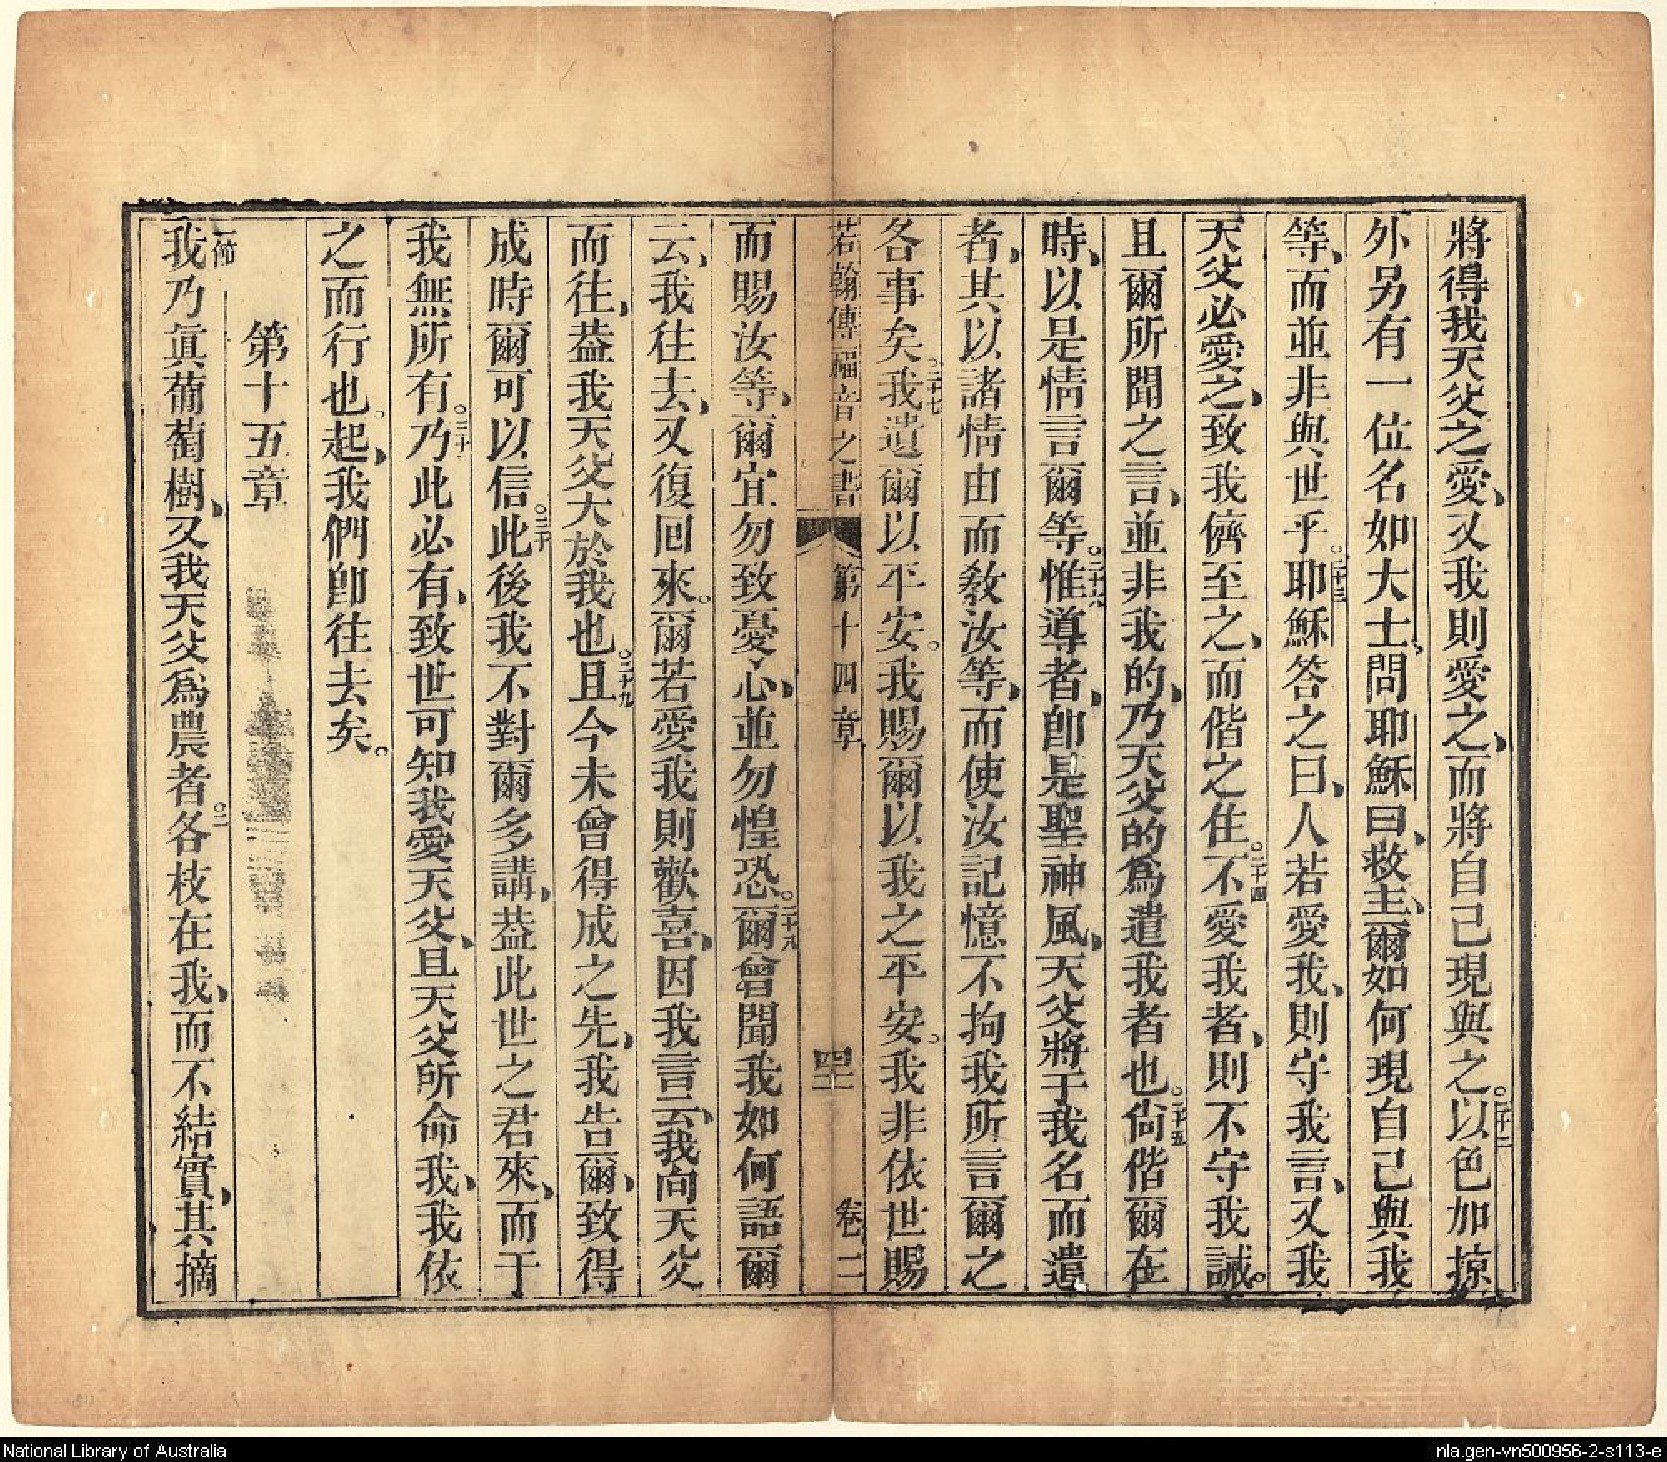 將得我天父之愛、又我則愛之、而將自己現與之。二十二以色加掠
外另有一位名如大士、問耶穌曰、救主、爾如何現自己與我
等、而並非與世乎。二十三耶穌答之曰、人若愛我、則守我言、又我
天父必愛之、致我儕至之、而偕之住。二十四不愛我者、則不守我誡。
且爾所聞之言、並非我的、乃天父的爲遣我者也。二十五尙偕爾在
時、以是情言爾等。二十六惟導者、卽是聖神風、天父將于我名而遣
者、其以諸情由而敎汝等、而使汝記憶不拘我所言爾之
各事矣。二十七我遺爾以平安。我賜爾以我之平安。我非依世賜
若翰傳福音之書 第十四章 卷二
而賜汝等、爾宜勿致憂心、並勿惶恐。二十八爾曾聞我如何語爾
云、我往去、又復回來。爾若愛我則歡喜、因我言云、我向天父
而往、葢我天父大於我也。二十九且今未曾得成之先、我告爾、致得
成時爾可以信。三十此後我不對爾多講、葢此世之君來、而于
我無所有。三十一乃此必有、致世可知我愛天父、且天父所命我、我依
之而行也。起、我們卽往去矣。
第十五章
一節我乃眞葡萄樹、又我天父爲農者。二各枝在我、而不結實、其摘
National Library of Australia
nla.gen-vn500956-2-s113-e